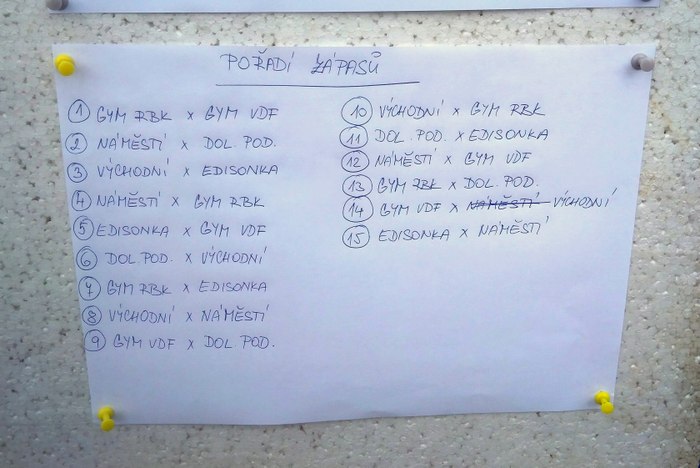 POŘADÍ ZÁPASŮ
1 GYM RBK x GYM VDF
2 NÁMĚSTÍ x DOL. POD.
3 VÝCHODNÍ x EDISONKA
4 NÁMĚSTÍ x GYM RBK
5 EDISONKA x GYM VDF
6 DOL. POD. x VÝCHODNÍ
7 GYM RBK x EDISONKA
8 VÝCHODNÍ x NÁMĚSTÍ
9 GYM VDF x DOL. POD.
10 VÝCHODNÍ x GYM RBK
11 DOL. POD. x EDISONKA
12 NÁMĚSTÍ x GYM VDF
13 GYM RBK x DOL. POD.
14 GYM VDF x NÁMĚSTÍ VÝCHODNÍ
15 EDISONKA x NÁMĚSTÍ